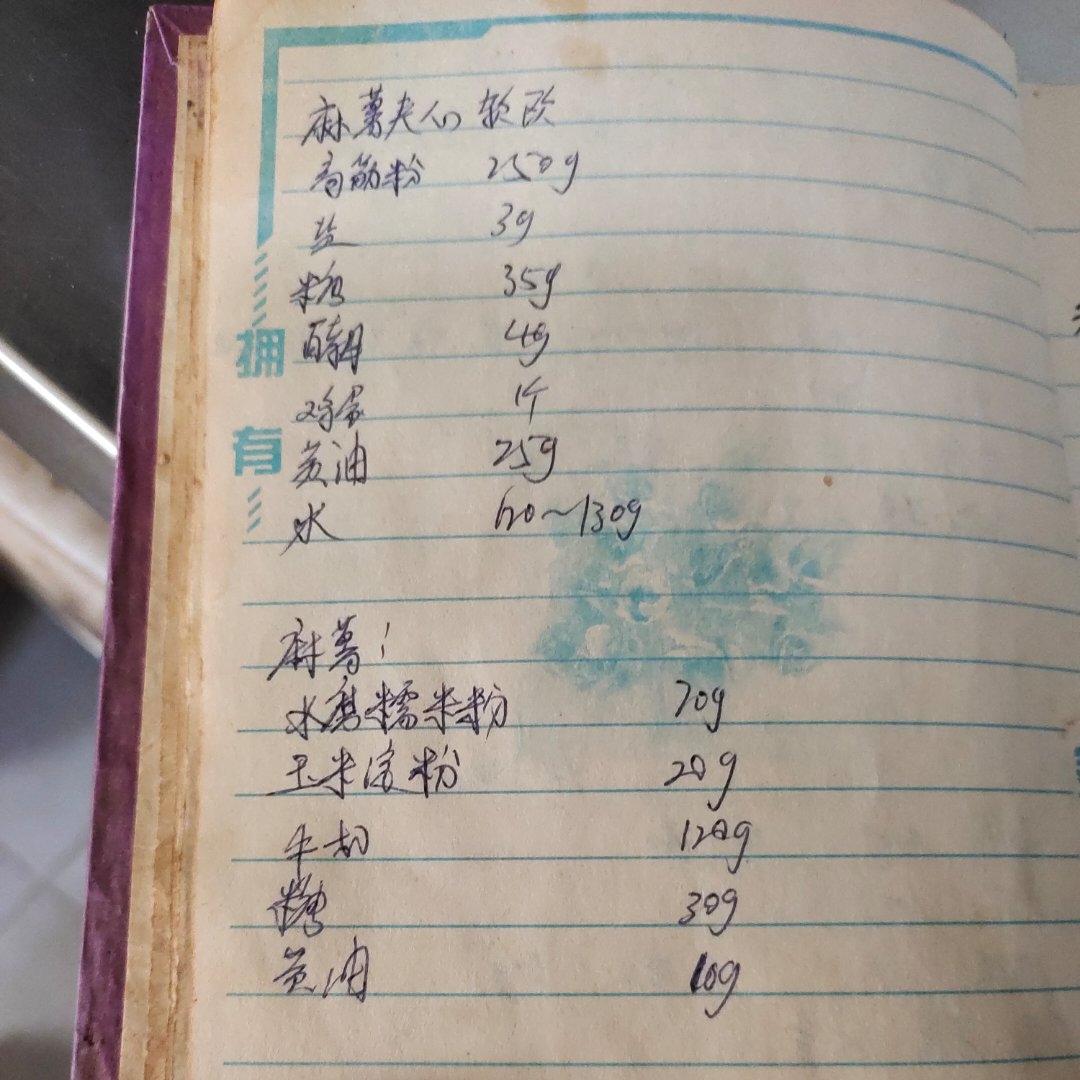 麻薯夹心软欧
高筋粉 250g
盐 3g
糖 35g
酵母 4g
鸡蛋 1个
黄油 25g
水 120~130g
麻薯:
水磨糯米粉 70g
玉米淀粉 20g
牛奶 120g
糖 30g
黄油 10g
拥
有